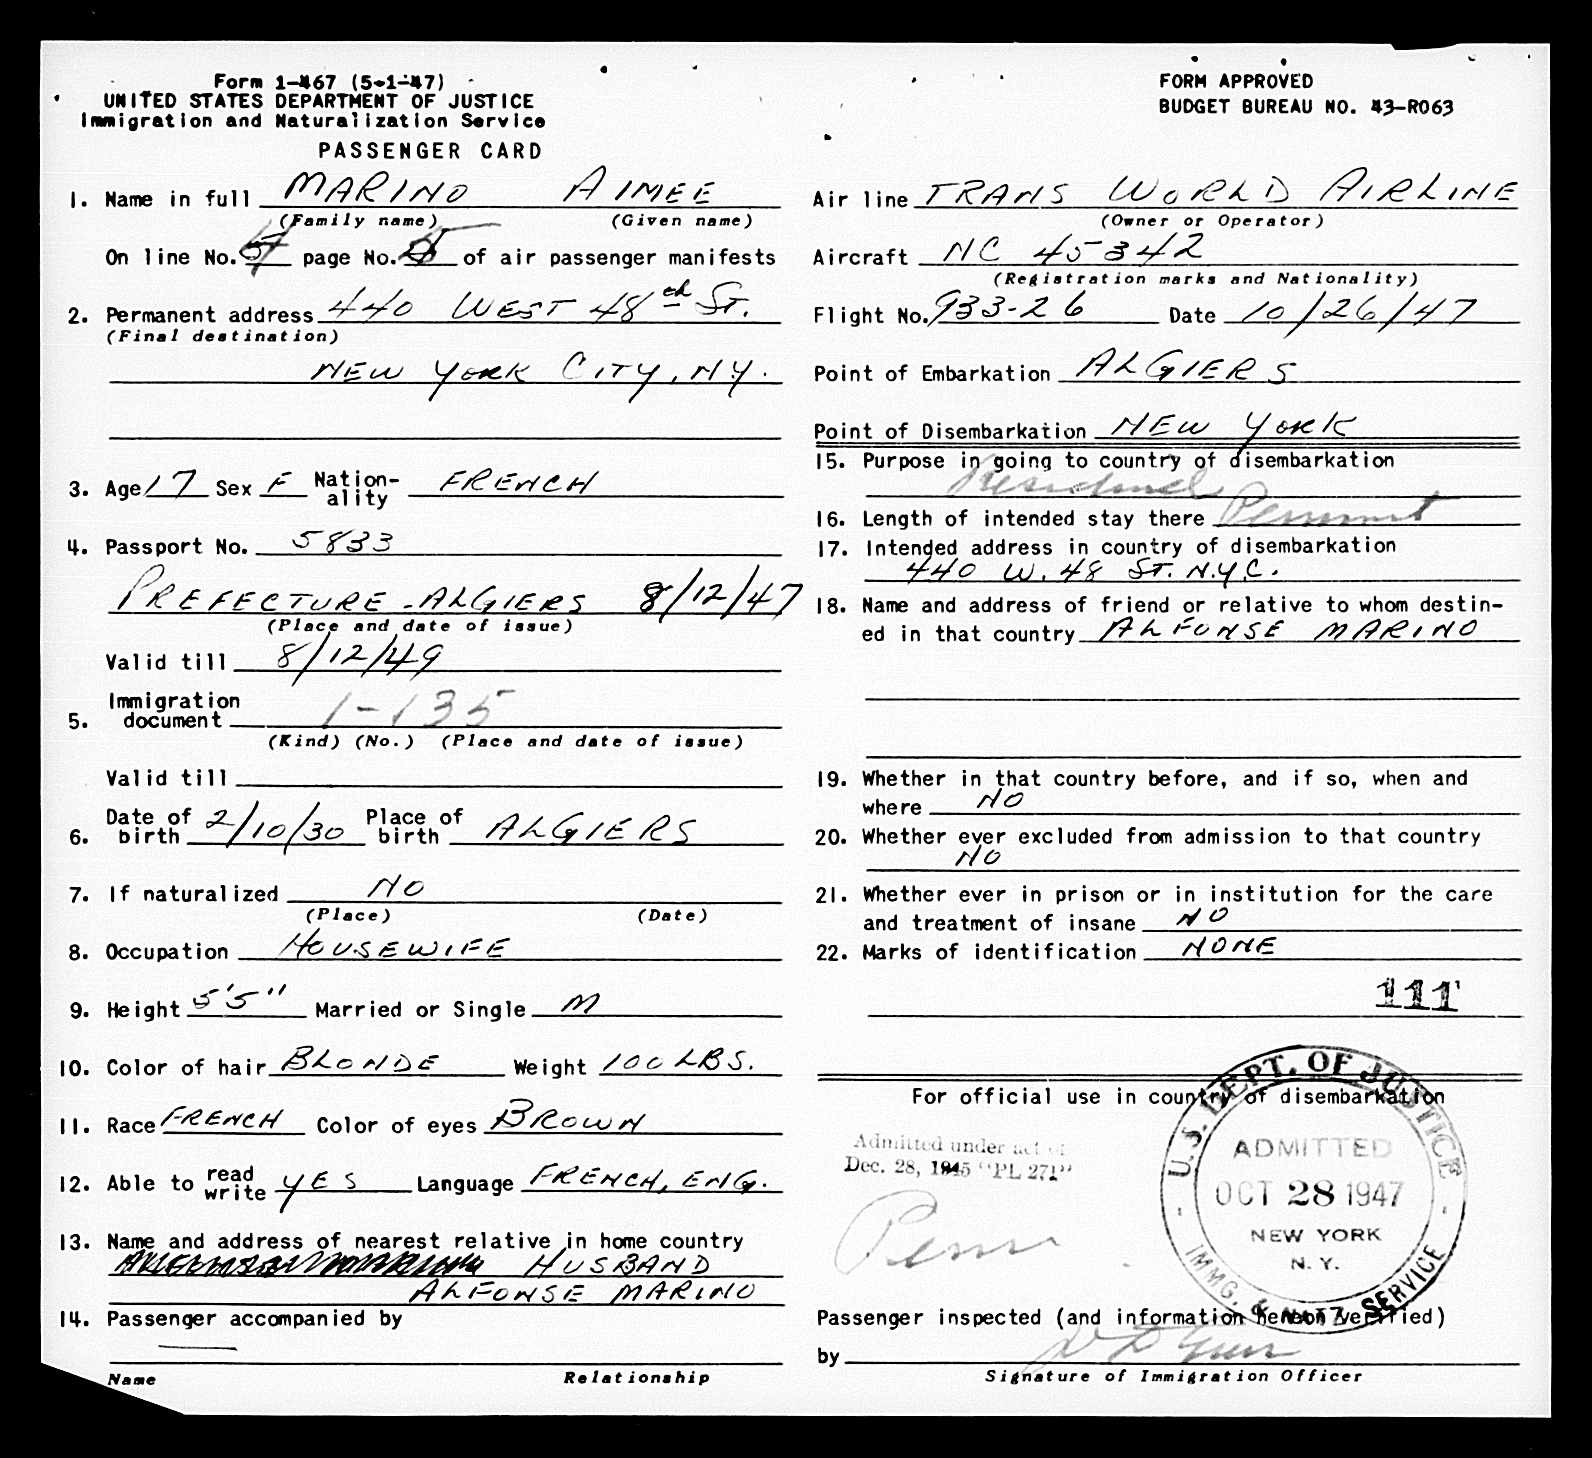 Form 1-467 (5-1-47)
UNITED STATES DEPARTMENT OF JUSTICE
Immigration and Naturalization Service
PASSENGER CARD
1. Name in full MARINO AIMEE
(Family name) (Given name)
On line No. page No. of air passenger manifests
2. Permanent address 440 WEST 48th ST.
(Final destination)
NEW YORK CITY, N.Y.
3. Age 17 Sex F Nation-ality FRENCH
4. Passport No. 5833
PREFECTURE - ALGIERS 8/12/47
(Place and date of issue)
Valid till 8/12/49
5. Immigration document 1-135
(Kind) (No.) (Place and date of issue)
Valid till
6. Date of birth 2/10/30 Place of birth ALGIERS
7. If naturalized NO
(Place) (Date)
8. Occupation HOUSEWIFE
9. Height 5'5" Married or Single M
10. Color of hair BLONDE Weight 100 LBS.
11. Race FRENCH Color of eyes BROWN
12. Able to read write YES Language FRENCH, ENG.
13. Name and address of nearest relative in home country
HUSBAND
ALFONSE MARINO
14. Passenger accompanied by
Name Relationship
FORM APPROVED
BUDGET BUREAU NO. 43-R063
Air line TRANS WORLD AIRLINE
(Owner or Operator)
Aircraft NC 45342
(Registration marks and Nationality)
Flight No. 933-26 Date 10/26/47
Point of Embarkation ALGIERS
Point of Disembarkation NEW YORK
15. Purpose in going to country of disembarkation
16. Length of intended stay there
17. Intended address in country of disembarkation
440 W. 48 ST. N.Y.C.
18. Name and address of friend or relative to whom destin-
ed in that country ALFONSE MARINO
19. Whether in that country before, and if so, when and
where NO
20. Whether ever excluded from admission to that country
NO
21. Whether ever in prison or in institution for the care
and treatment of insane NO
22. Marks of identification NONE
111
For official use in country of disembarkation
Admitted under act of
Dec. 28, 1945 "PL 271"
Perm
U.S. DEPT. OF JUSTICE
ADMITTED
OCT 28 1947
NEW YORK
N.Y.
IMMG. & NATZ. SERVICE
Passenger inspected (and information hereon verified)
by
Signature of Immigration Officer